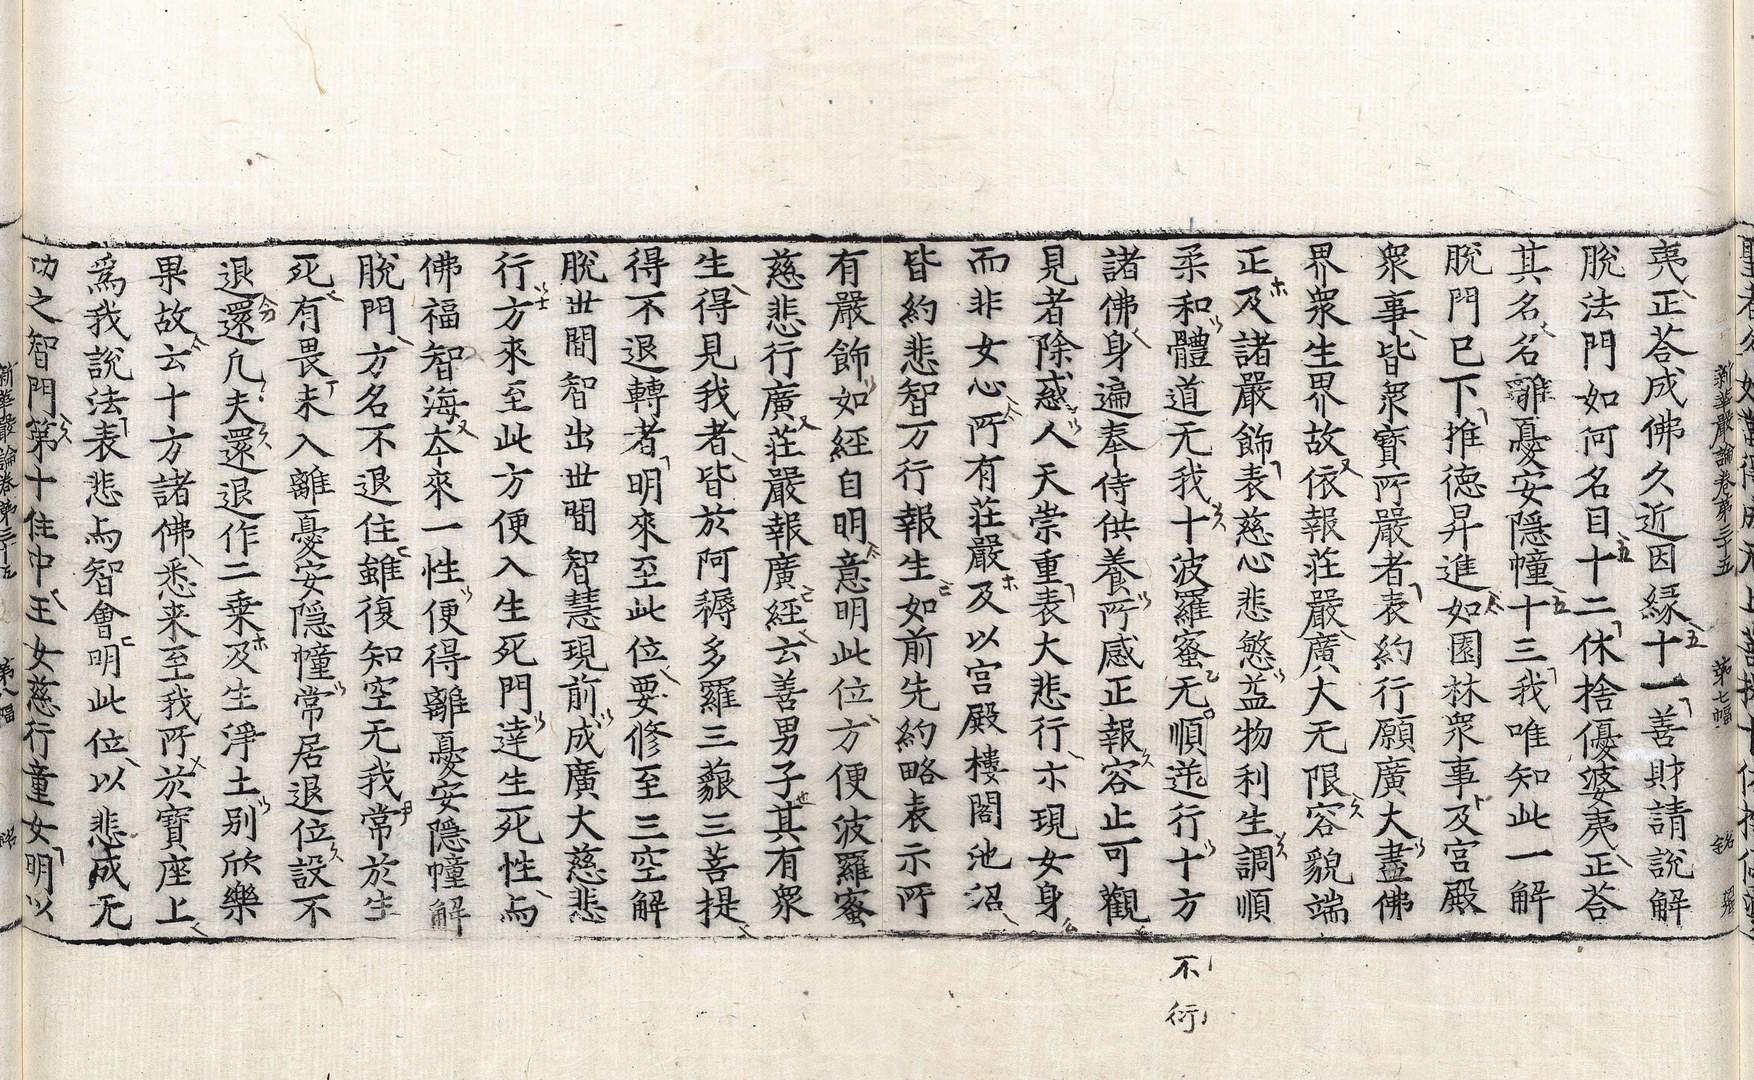 夷正荅成佛久近因緣十一善財請說解
脫法門如何名目十二休捨優婆夷正荅
其名名離憂安隱幢十三我唯知此一解
脫門已下推德昇進如園林衆事及宮殿
衆事皆衆寶所嚴者表約行願廣大盡佛
界衆生界故依報莊嚴廣大无限容貌端
正及諸嚴飾表慈心悲慜益物利生調順
柔和體道无我十波羅蜜无順逆行十方
諸佛身遍奉侍供養所感正報容止可觀
見者除惑人天崇重表大悲行亦現女身
而非女心所有莊嚴及以宮殿樓閣池沼
皆約悲智万行報生如前先約略表示所
有嚴飾如經自明意明此位方便波羅蜜
慈悲行廣莊嚴報廣經云善男子其有衆
生得見我者皆於阿耨多羅三藐三菩提
得不退轉者明來至此位要修至三空解
脫世間智出世間智慧現前成廣大慈悲
行方來至此方便入生死門達生死性与
佛福智海本來一性便得離憂安隱幢解
脫門方名不退住雖復知空无我常於生
死有畏未入離憂安隱幢常居退位設不
退還凡夫還退作二乘及生淨土別欣樂
果故云十方諸佛悉来至我所於寶座上
爲我說法表悲与智會明此位以悲成无
功之智門第十住中王女慈行童女明以
新華嚴論卷第三十五 第七幅
不
衍